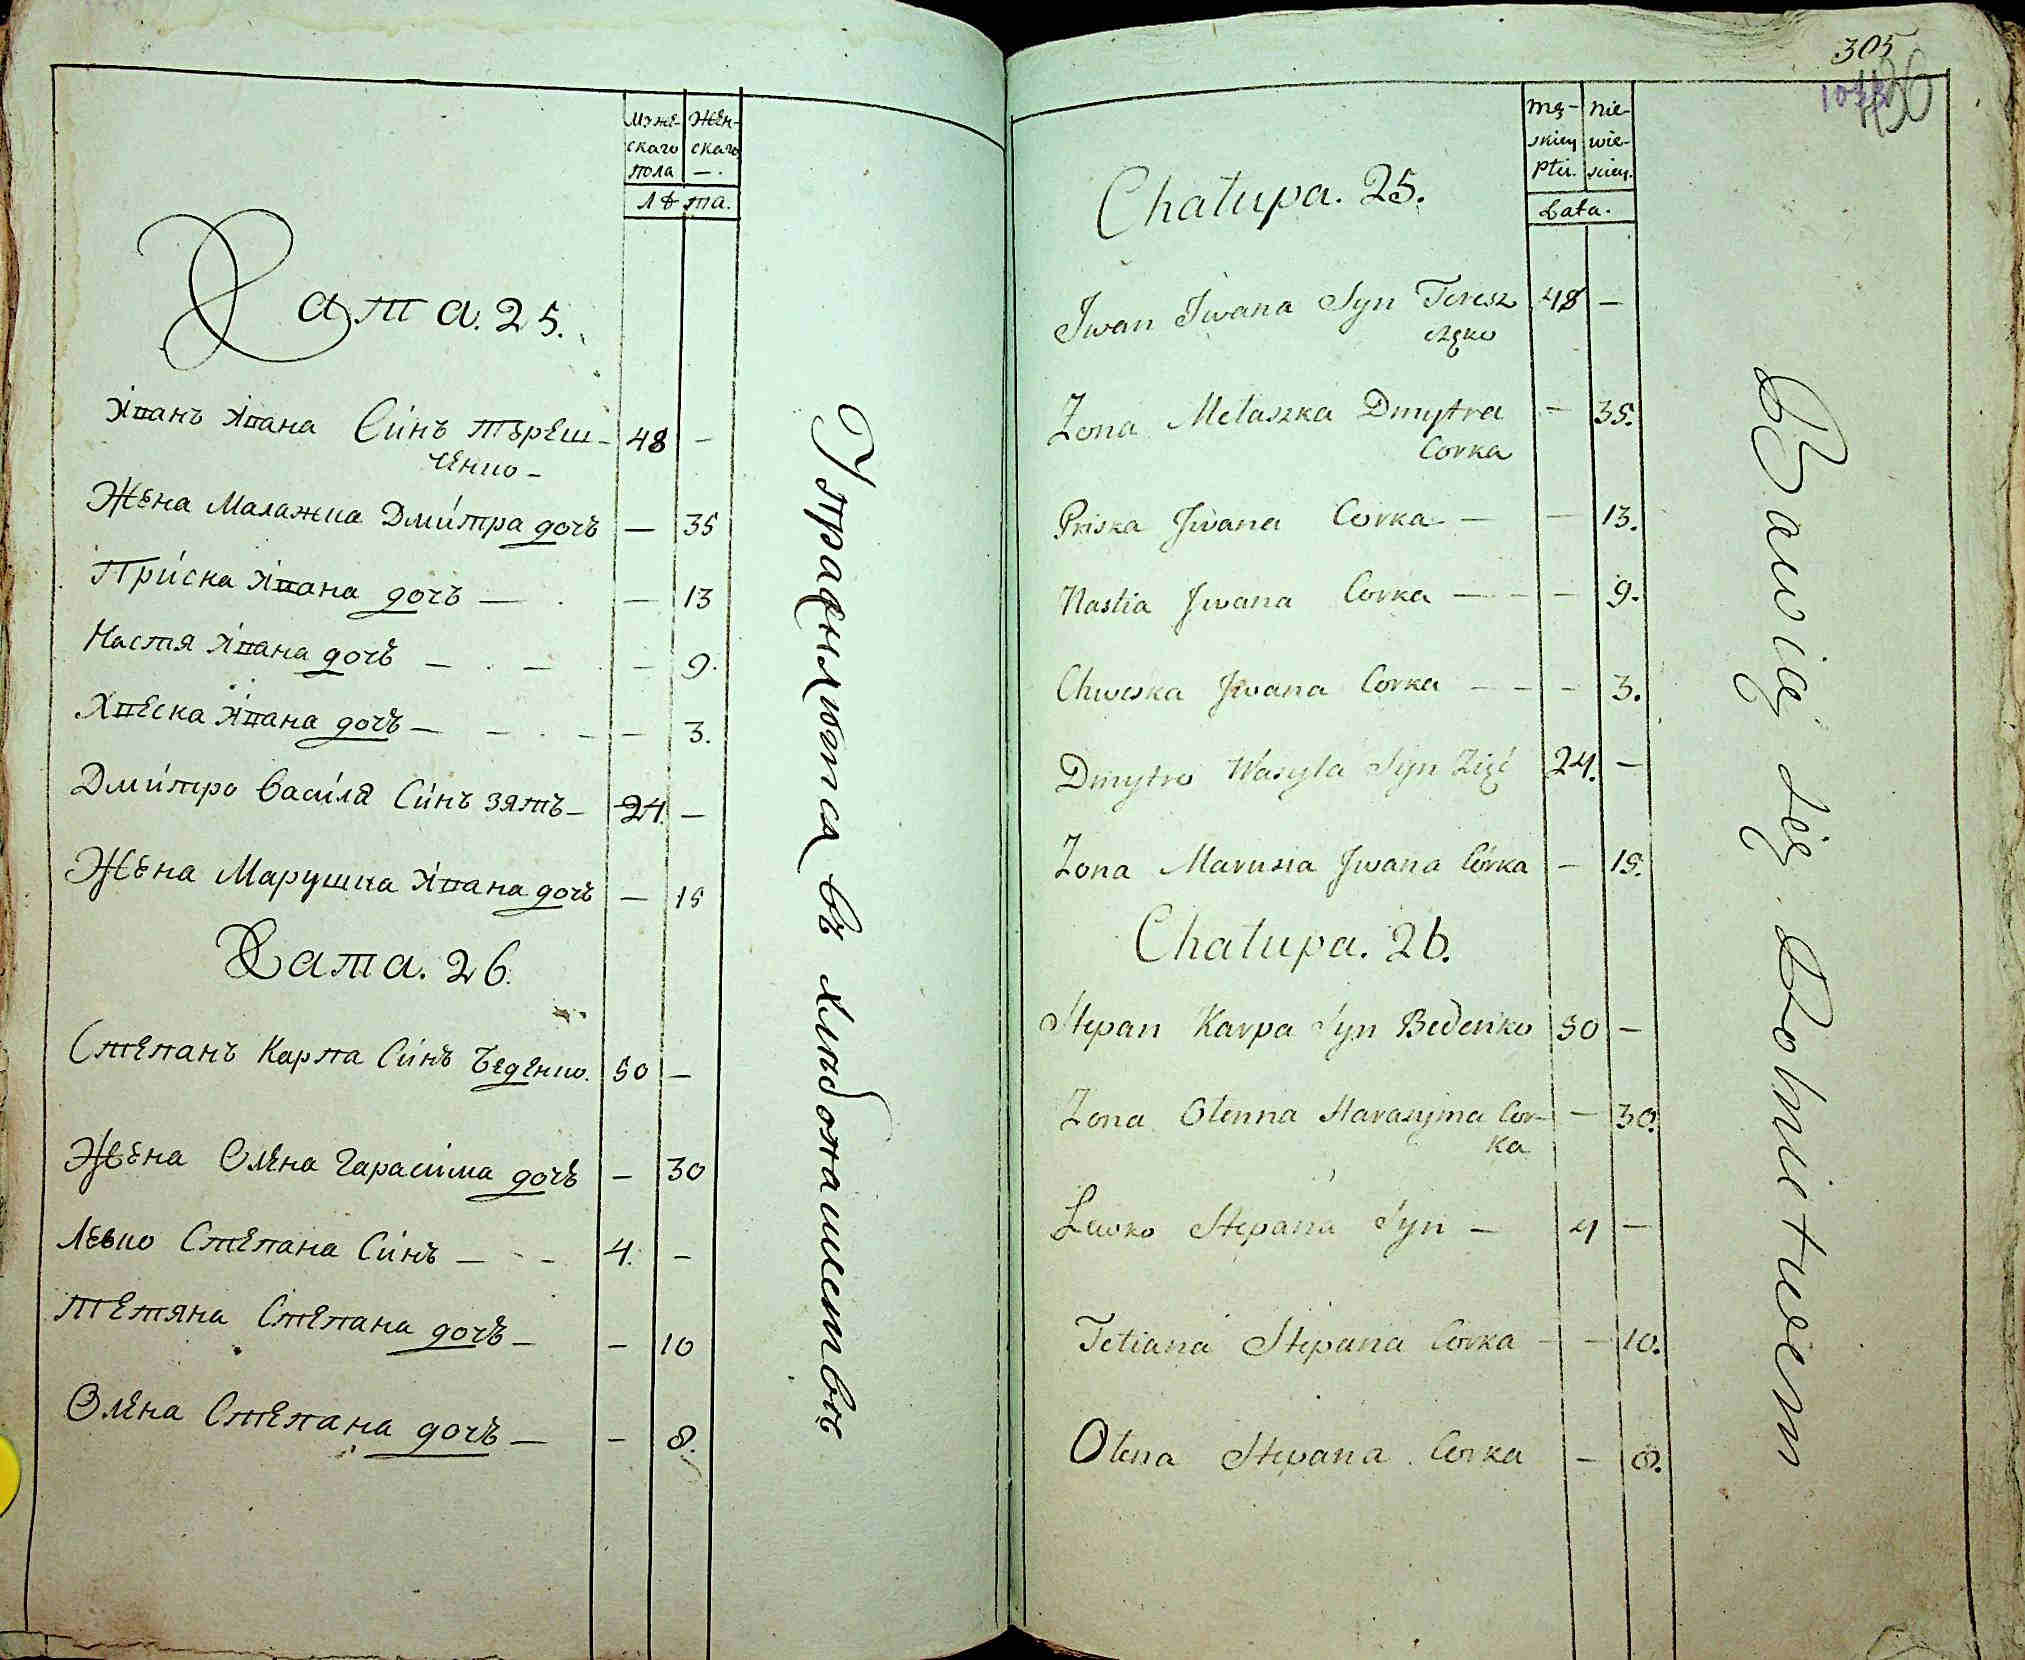 мужескаго пола
женскаго —.
лѣта.
Хата. 25.
Іванъ Івана Си́нъ терещ- 48 —
ченко —
Жена Малашка Дми́тра дочь — 35
При́ска Івана дочь — — 13
Настя Івана дочь — — — 9.
Хвеска Івана дочь — — — — 3.
Дми́тро Васи́ля Си́нъ зять — 24. —
Жена Марушка Івана дочь — 15
Хата. 26.
Степанъ Карпа Си́нъ Беденко. 50 —
Жена Олена Гарасіма дочь — 30
Левко Степана Си́нъ — - - 4. —
тетяна Степана дочь — — 10
Олена Степана дочь — — 8.
Упражняются въ хлибопашествѣ
305
Mę-
skiey
Płci.
Nie-
wie-
sciey.
Lata.
Chałupa. 25.
Jwan Jwana Syn Teresz 48 —
częko
Zona Melaszka Dmytra — 35.
Corka
Priska Jwana Corka — — 13.
Nastia Jwana Corka — - — 9.
Chweska Jwana Corka — - — 3.
Dmytro Wasyla Syn Zięć 24. —
Zona Marusia Jwana Córka — 15.
Chałupa. 26.
Stepan Karpa Syn Bedeńko 50 —
Zona Olenna Harasyma Cor- — 30.
ka
Lewko Stepana Syn — 4 —
Tetiana Stepana Corka - — 10.
Olena Stepana Corka — 8.
Bawią się Rolnictwem